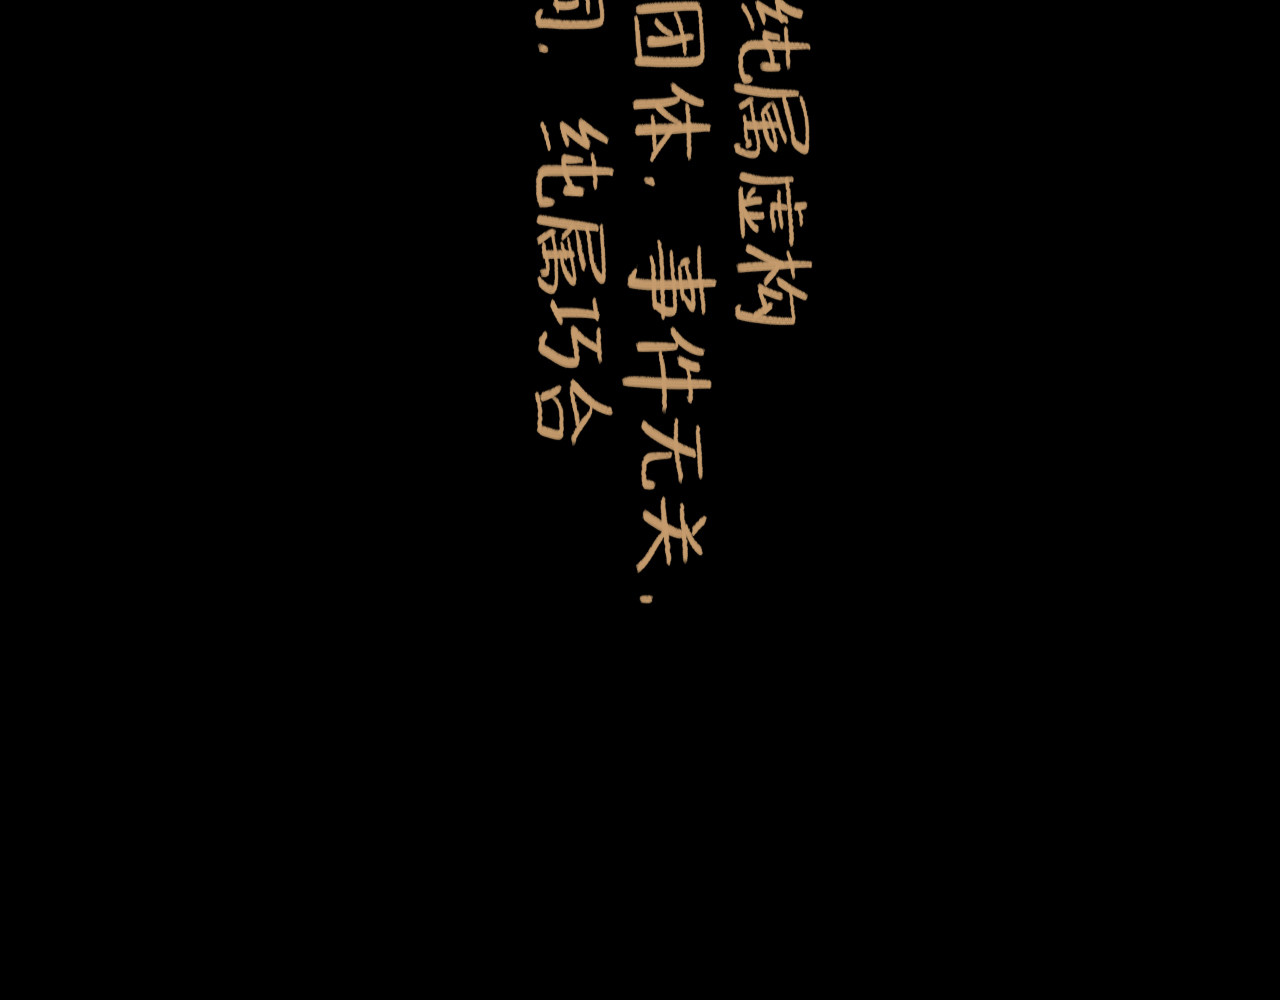 纯属虚构
团体. 事件无关.
同. 纯属巧合